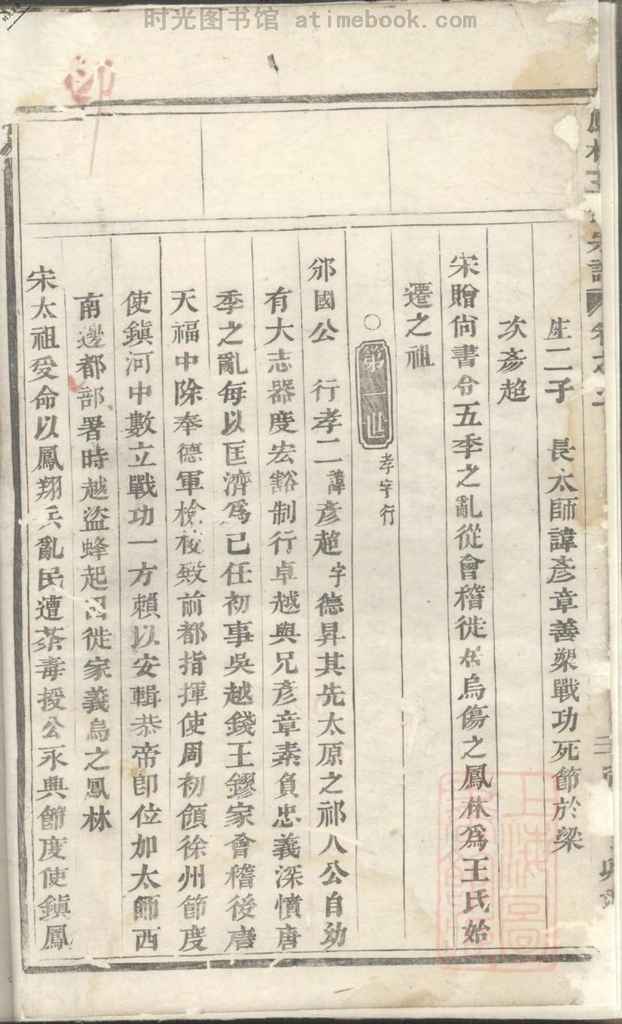 时光图书馆 atimebook.com
生二子 長太師諱彥章善槊戰功死節於梁
次彥超
宋贈尚書令五季之亂從會稽徙居烏傷之鳳林爲王氏始
遷之祖
○第一世 孝字行
邠國公 行孝二諱彥超字德昇其先太原之祁人公自幼
有大志器度宏豁制行卓越與兄彥章素負忠義深憤唐
季之亂每以匡濟爲己任初事吳越錢王鏐家會稽後唐
天福中除奉德軍檢校致前都指揮使周初領徐州節度
使鎭河中數立戰功一方賴以安輯恭帝卽位加太師西
南邊都部署時越盜蜂起因徙家義烏之鳳林
宋太祖受命以鳳翔兵亂民遭荼毒授公永興節度使鎭鳳